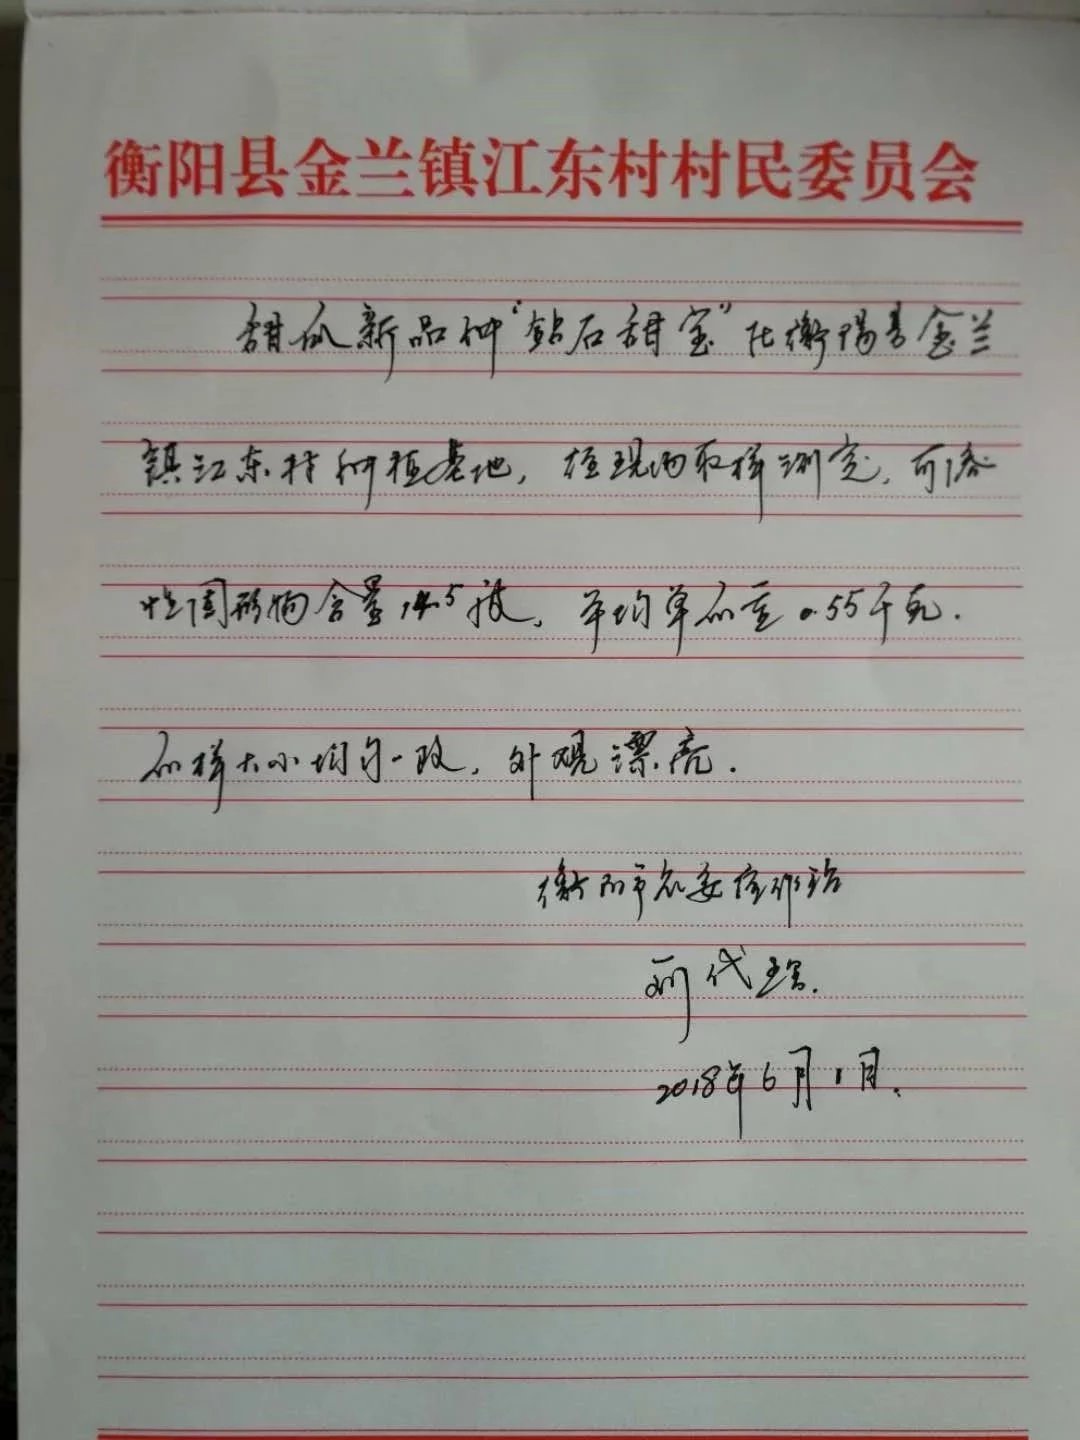 衡阳县金兰镇江东村村民委员会
甜瓜新品种“钻石甜宝”在衡陽县金兰
镇江东村种植基地，经现场取样测定，可溶
性固形物含量14.5度，平均单瓜重0.55千克.
瓜样大小均匀一致，外观漂亮.
衡阳市农委经作站
刘代
2018年6月1日.